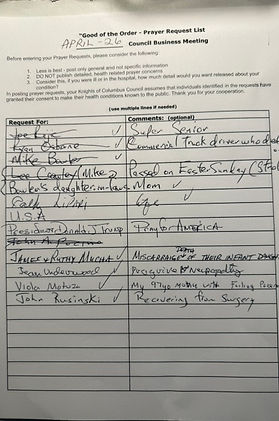 "Good of the Order - Prayer Request List
APRIL - 26 Council Business Meeting
Before entering your Prayer Requests, please consider the following:
1. Less is best - post only general and not specific information
2. DO NOT publish detailed, health related prayer concerns
3. Consider this, if you were ill or in the hospital, how much detail would you want released about your condition?
In posting prayer requests, your Knights of Columbus Council assumes that individuals identified in the requests have granted their consent to make their health conditions known to the public. Thank you for your cooperation.
(use multiple lines if needed)
Request For: Comments: (optional)
Joe Super Senior
Ryan Osborne Commercial Truck driver who died
Mike
Lee / Mike Passed on Easter Sunday
daughter-in-laws Mom
U.S.A
President Donald J Trump Pray for AMERICA
JAMES & RUTHY MUCHA MISCARRIAGE DEATH OF THEIR INFANT
Jean Underwood Neuropathy
Viola My 97yo mother with Failing
John Rusinski Recovering from Surgery